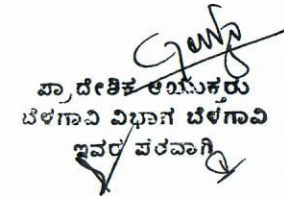 ಪ್ರಾದೇಶಿಕ ಆಯುಕ್ತರು
ಬೆಳಗಾವಿ ವಿಭಾಗ ಬೆಳಗಾವಿ
ಇವರ ಪರವಾಗಿ